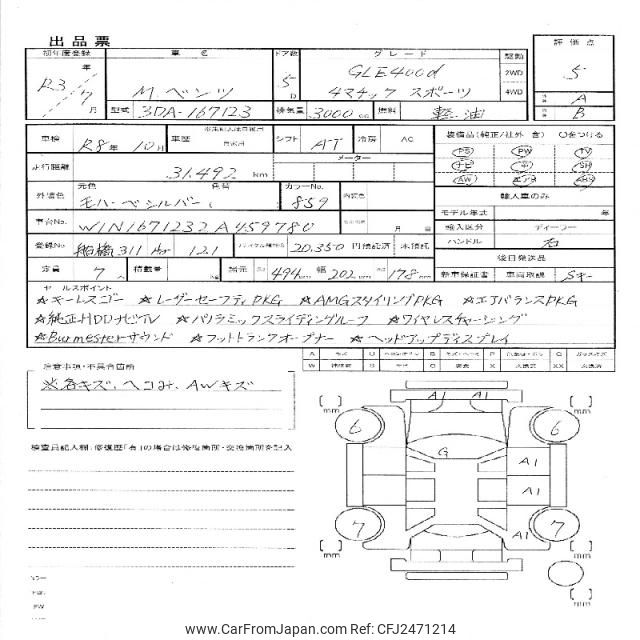 出品票
初年度登録 車名 ドア数 グレード 駆動 評価点
R3年 7月 M.ベンツ 5D GLE400d 4マチック スポーツ 2WD 4WD 5
型式 3DA-167123 排気量 3000cc 燃料 軽油 A B
車検 R8年 10月 車歴 シフト AT 冷房 AC 装備品(純正/社外 含) ○をつける
走行距離 31,492 km メーター PS PW TV
ナビ SR
AW エアB ABS
外装色 元色 モハーベシルバー 色番 カラーNo. 859 内装色 輸入車のみ
モデル年式 年
車台No. W1N1671232A459780 輸入区分 ディーラー
登録No 船橋 311 121 リサイクル 20,350 円預託済 未預託 ハンドル 右
後日発送品
定員 7人 積載量 kg 諸元 494cm 幅 202cm 178cm 新車保証書 車両取説 Sキー
セールスポイント
☆キーレスゴー ☆レーザーセーフティPKG ☆AMGスタイリングPKG ☆エアバランスPKG
☆純正HDDナビTV ☆パノラミックスライディングルーフ ☆ワイヤレスチャージング
☆Burmesterサウンド ☆フットトランクオープナー ☆ヘッドアップディスプレイ
注意事項・不具合箇所
※各キズ、ヘコミ、AWキズ
検査員記入欄:修復歴「有」の場合は修復箇所・交換箇所を記入
mm mm
A1 A1
6 6
G
A1
A1
7 7
A1
mm mm
mm
www.CarFromJapan.com No. CFJ2471214